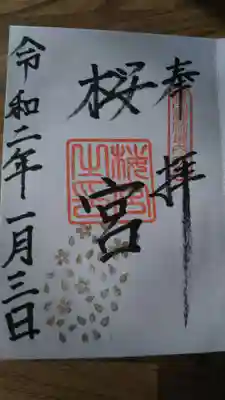 奉拝
桜宮
令和二年一月三日